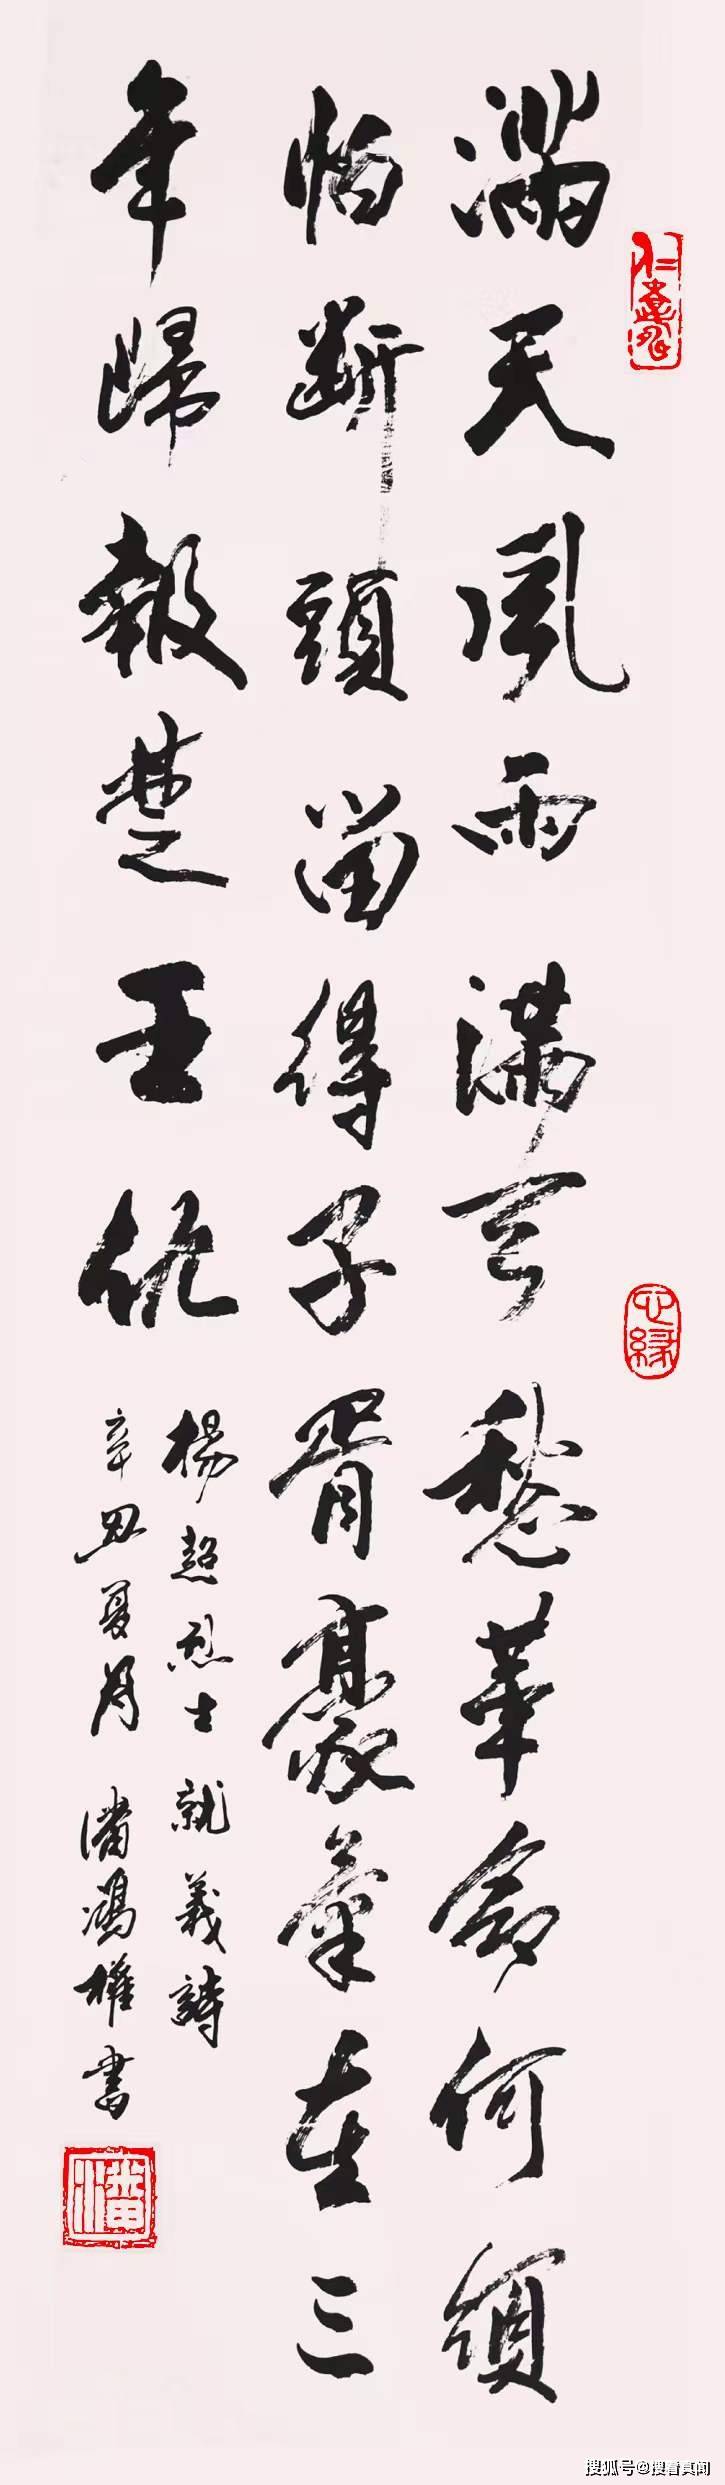 滿天風雨滿天愁革命何須
怕斷頭留得子胥豪氣在三
年歸報楚王仇
楊超烈士就義詩
辛丑夏月 潘鴻權書
潘
搜狐号@搜看真闻